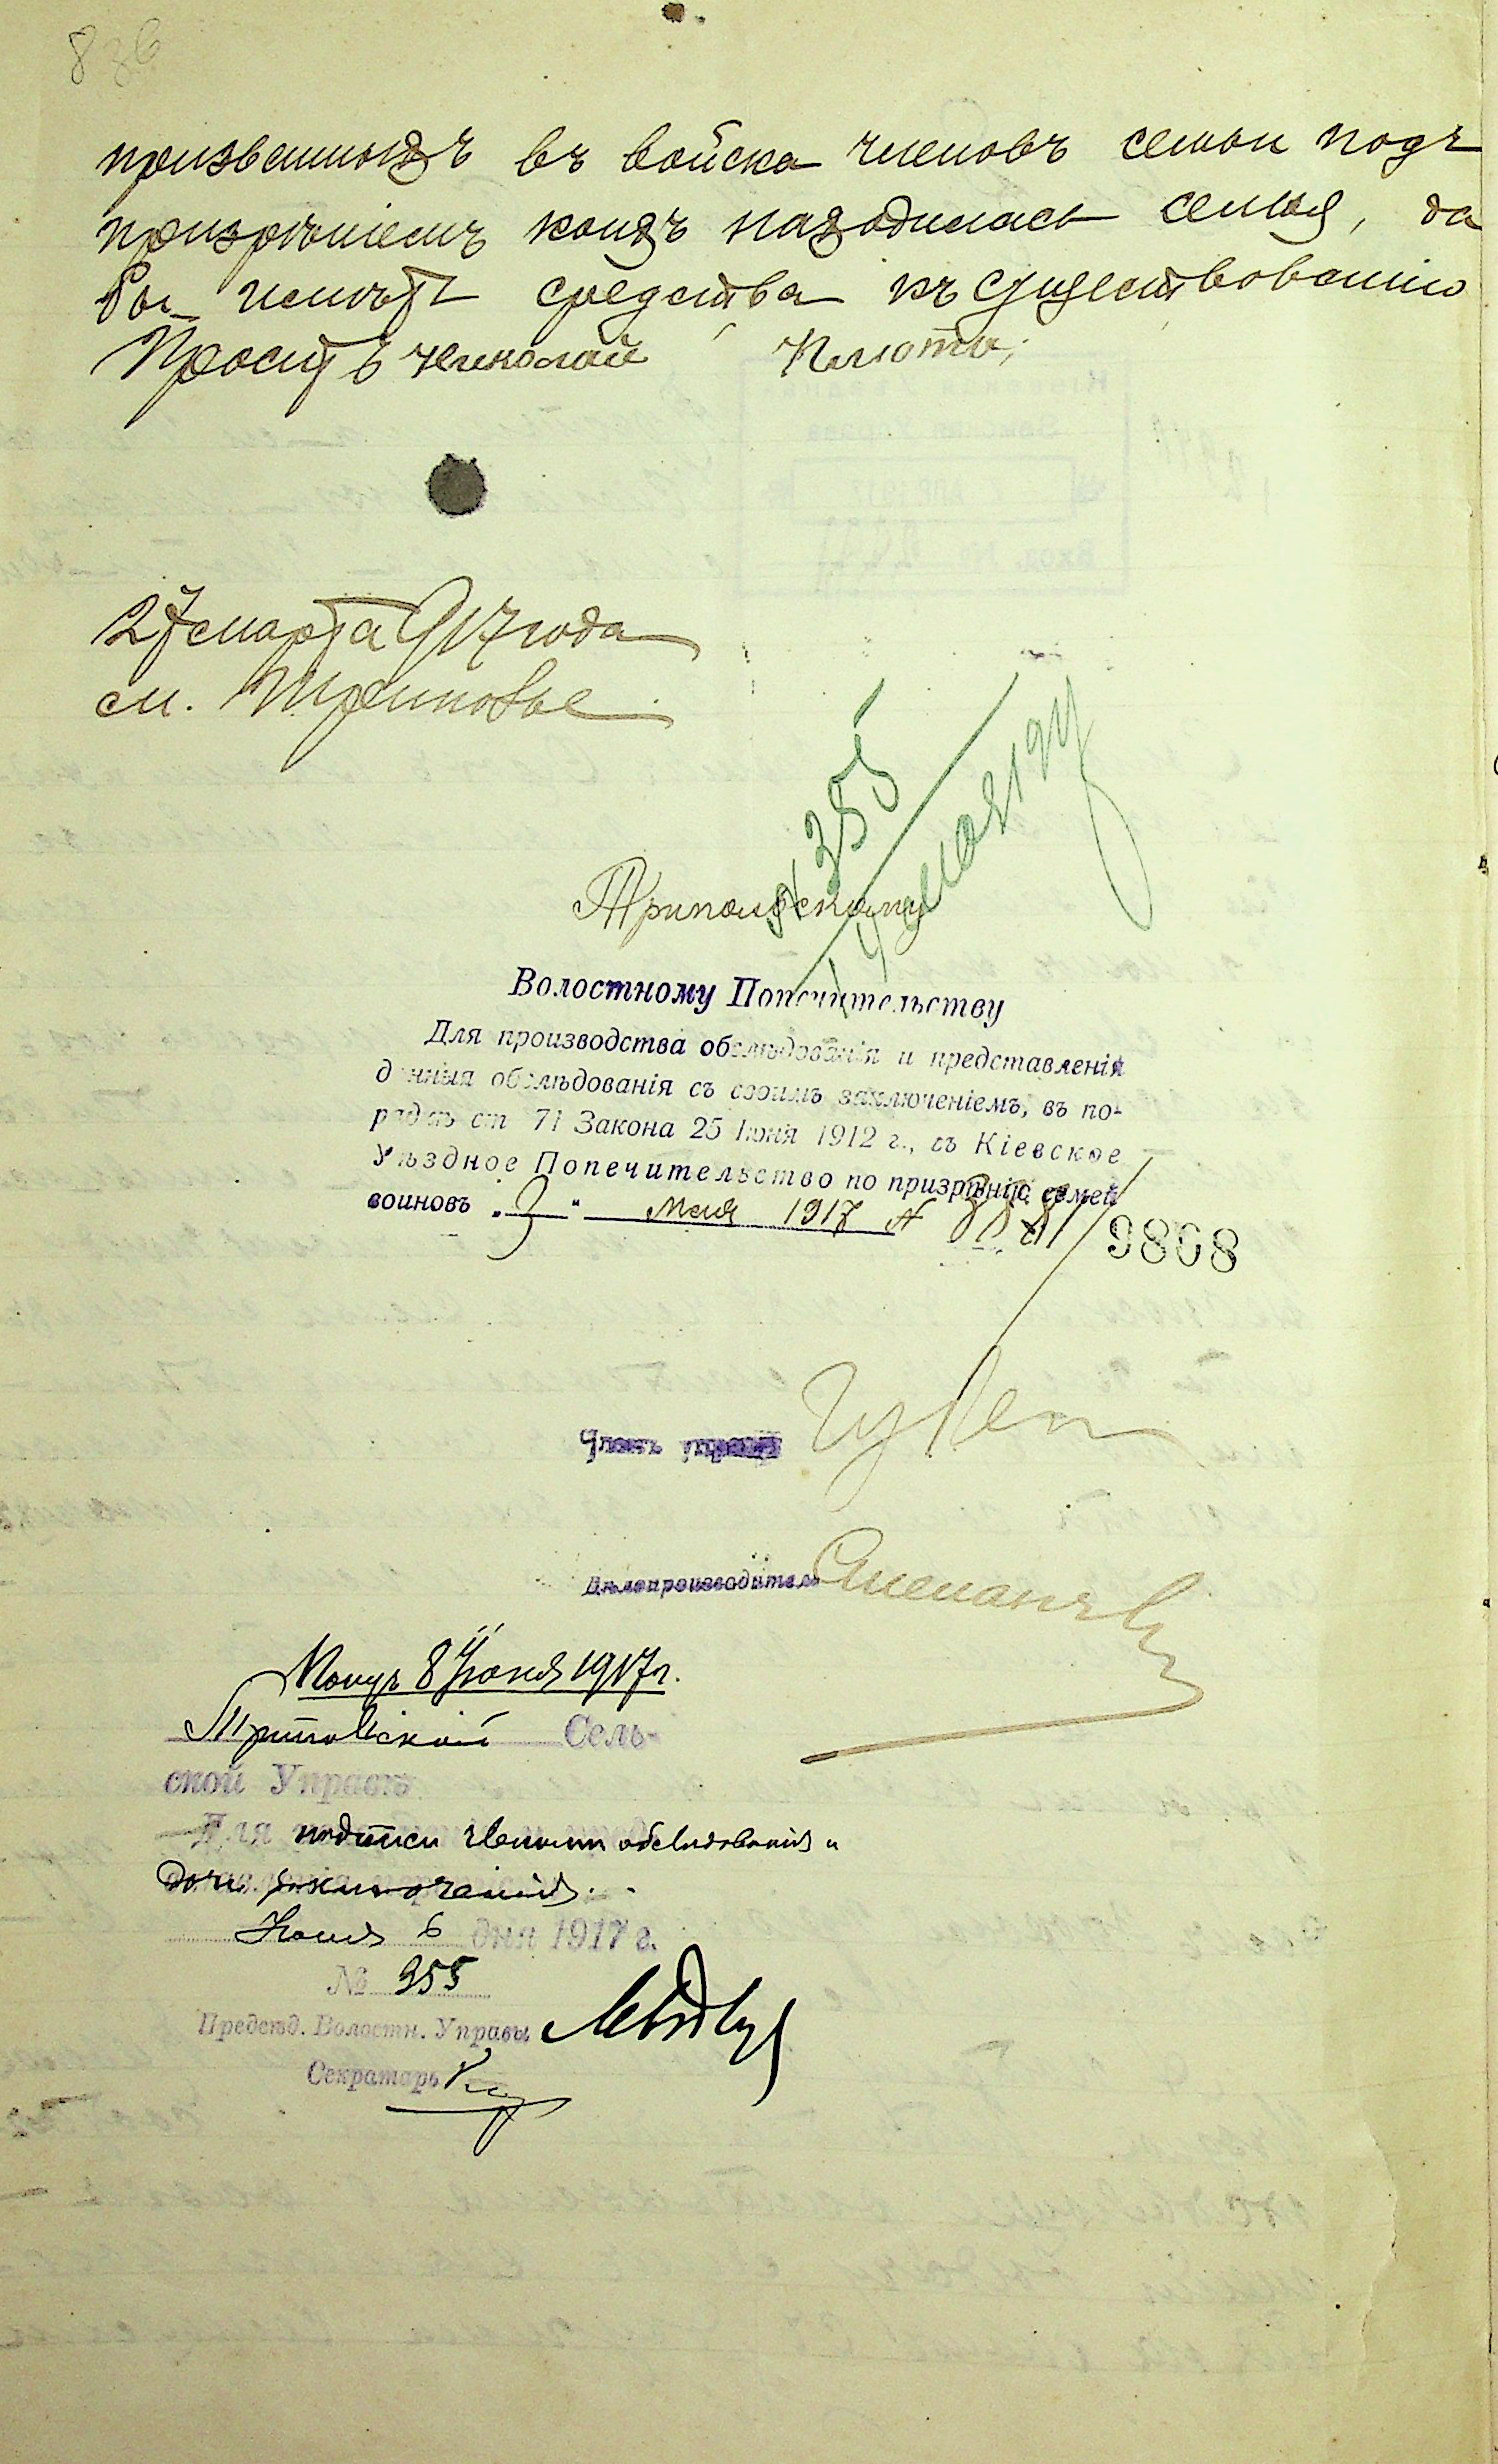 призванныхъ въ войска членовъ семьи подъ
призрѣніемъ коихъ находилась семья, да
бы имѣть средства къ существованію
Проситъ Николай Плюта;
27 марта 917 года
м. Триполье
№ 355
Трипольскому
Волостному Попечительству
Для производства обслѣдованія и представленія
данныя обслѣдованія съ своимъ заключеніемъ, въ по-
рядкѣ ст 71 Закона 25 Іюня 1912 г., съ Кіевское
Уѣздное Попечительство по призрѣнію семей
воиновъ „3“ Мая 1917 №
9868
Членъ управы
Дѣлопроизводитель
Получ 8 Іюня 1917 г.
Трипольской Сель-
ской Управѣ
Для подписи членами обслѣдованія и
дачи заключенія.
Іюня 6 дня 1917 г.
№ 955
Предсѣд. Волостн. Управы
Секретарь